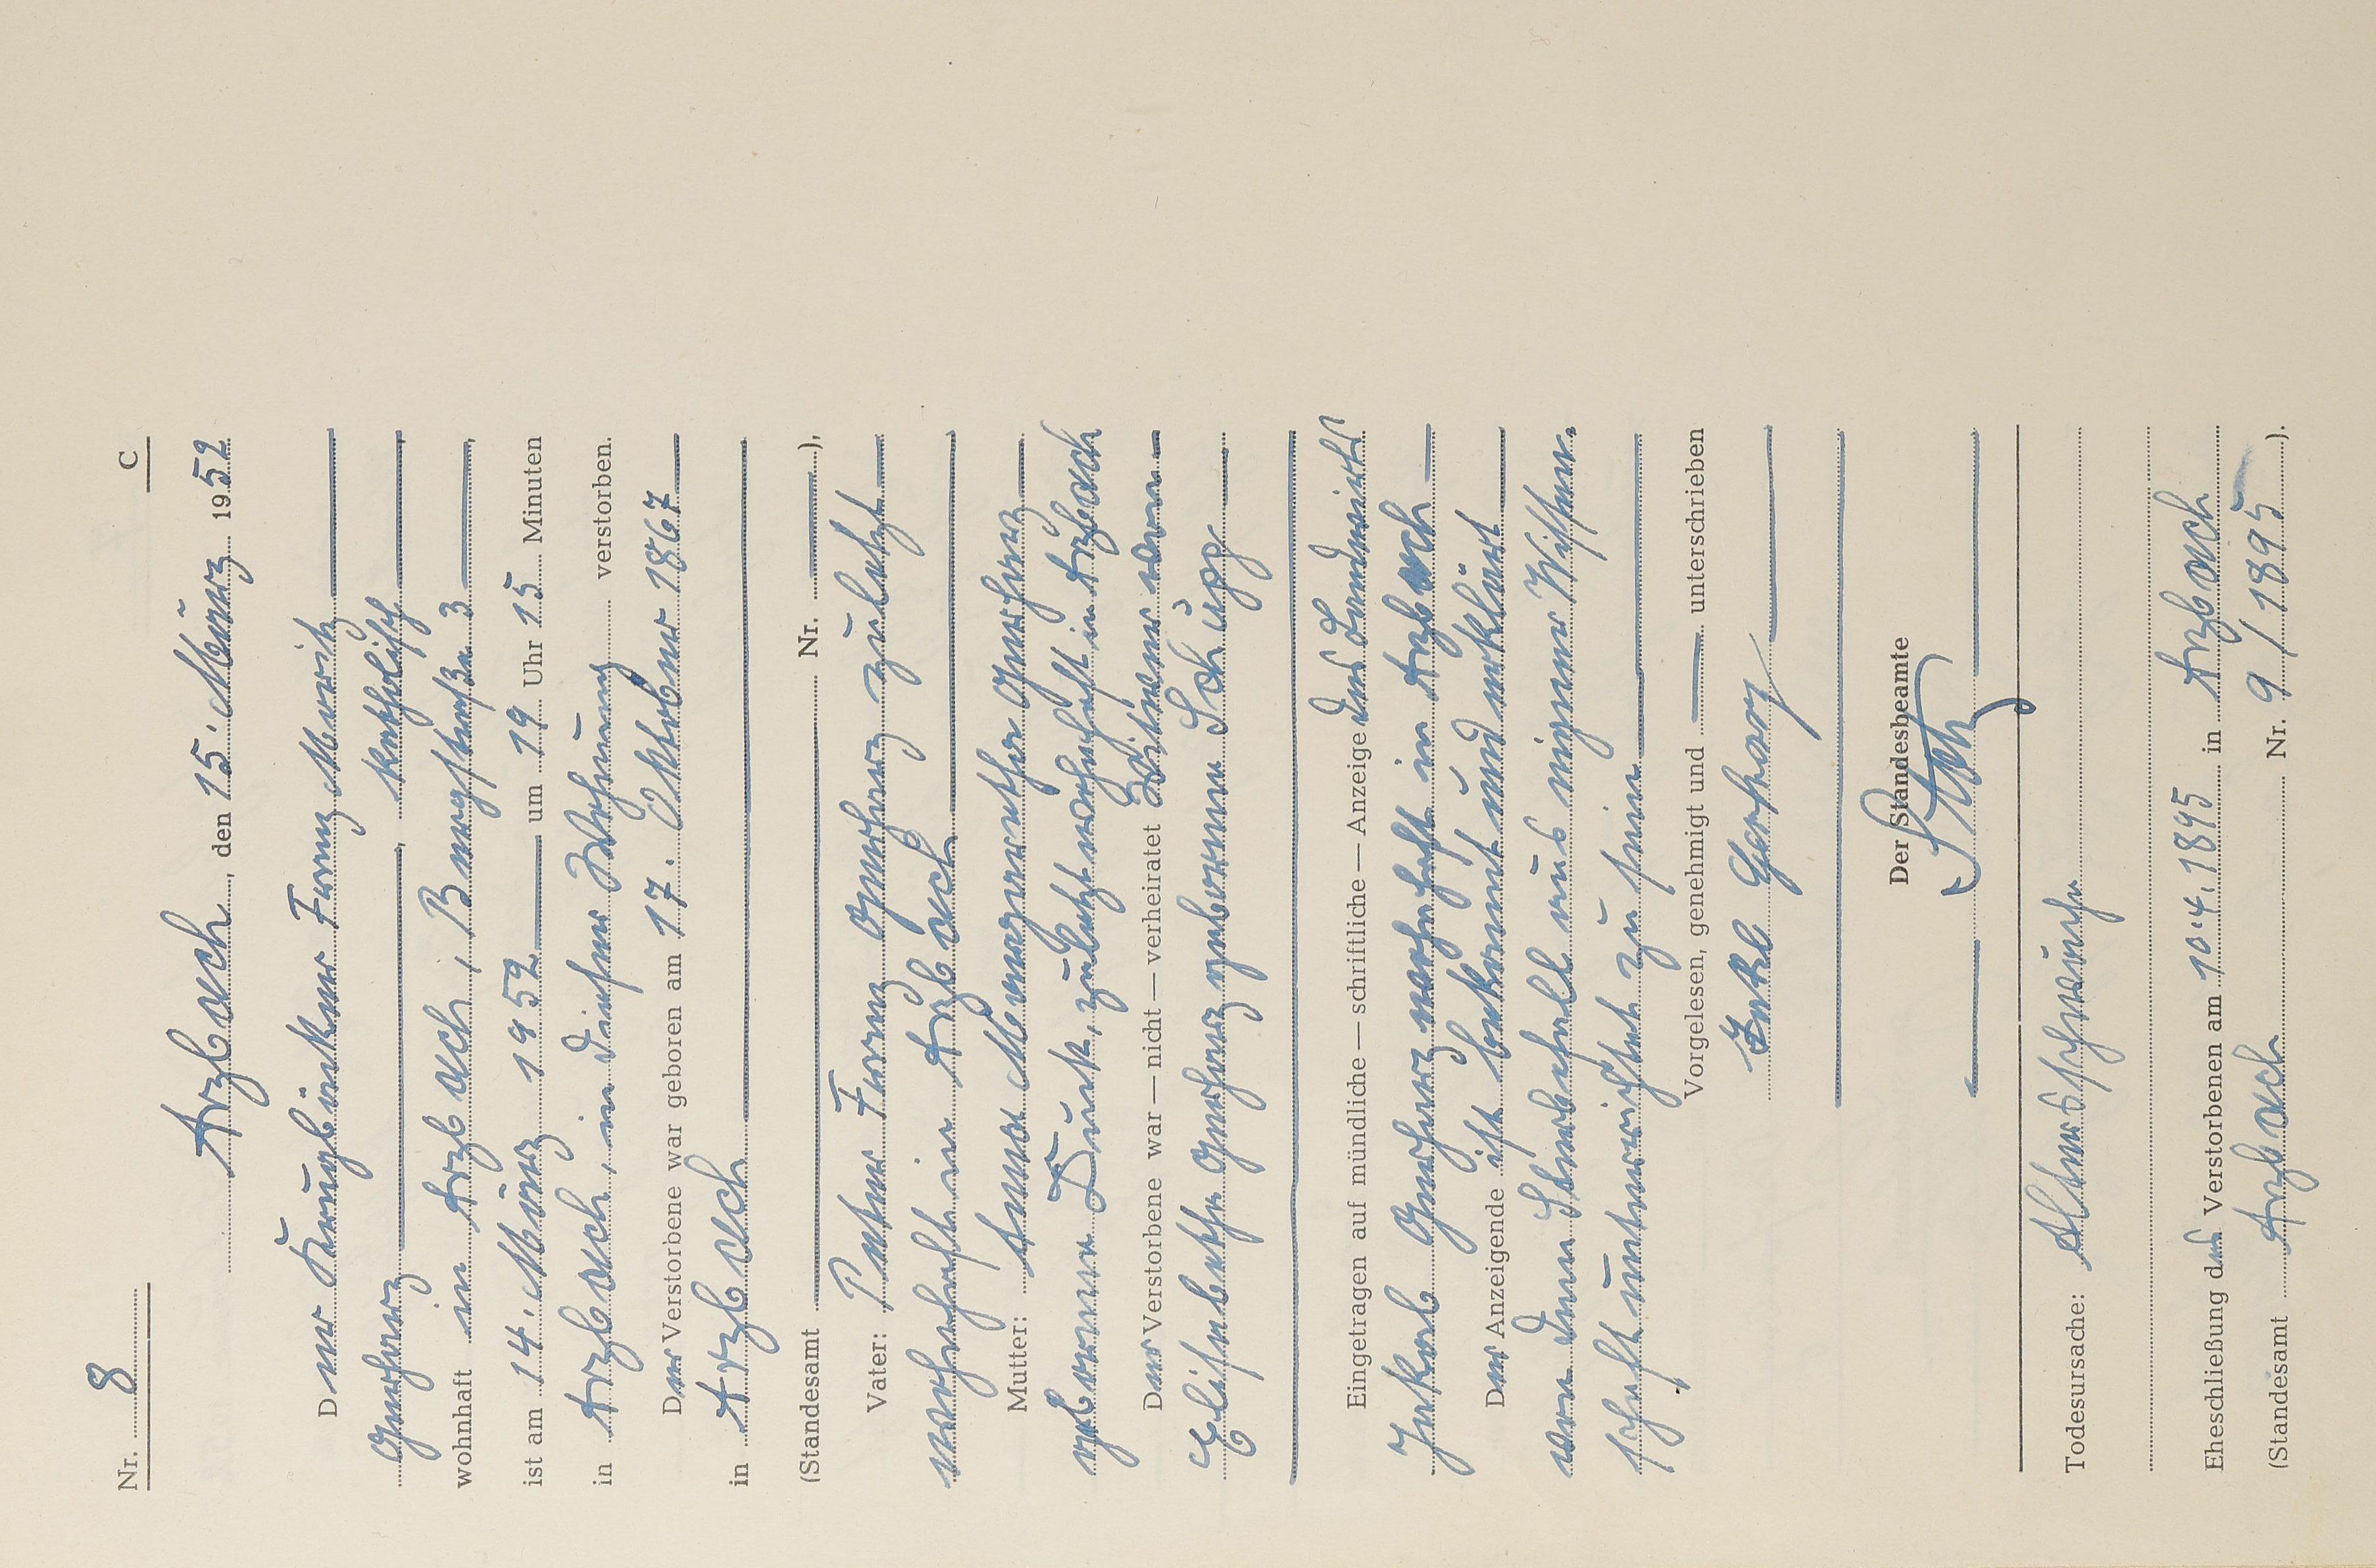 Nr. 8 C
Arzbach, den 15. März 1952
Der Krugbäcker Franz Moritz
Gerharz, katholisch
wohnhaft in Arzbach, Bergstraße 3,
ist am 14. März 1952 um 19 Uhr 15 Minuten
in Arzbach, in dieser Wohnung verstorben.
Der Verstorbene war geboren am 17. Oktober 1867
in Arzbach
(Standesamt Nr. ),
Vater: Peter Franz Gerharz zuletzt
wohnhaft in Arzbach
Mutter: Anna Margaretha Gerharz
geborene Dunk, zuletzt wohnhaft in Arzbach
Der Verstorbene war — nicht — verheiratet Witwer von
Elisabetha Gerharz geborenen Schupp
Eingetragen auf mündliche — schriftliche — Anzeige des Landwirts
Jakob Gerharz wohnhaft in Arzbach
Der Anzeigende ist bekannt und erklärt
von dem Sterbefall aus eigener Wissen-
schaft unterrichtet zu sein
Vorgelesen, genehmigt und unterschrieben
Jakob Gerharz
Der Standesbeamte
Todesursache: Altersschwäche
Eheschließung des Verstorbenen am 10.4.1895 in Arzbach
(Standesamt Arzbach Nr. 9/1895).